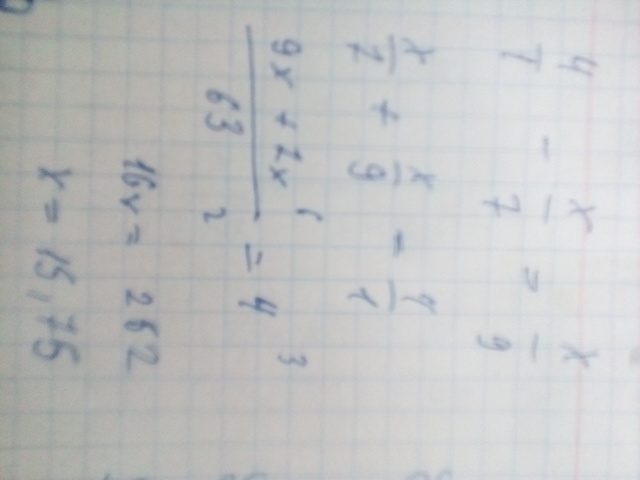 4/1 - x/7 = x/9
x/7 + x/9 = 4/1
9x + 7x / 63 = 4
16x = 252
x = 15,75